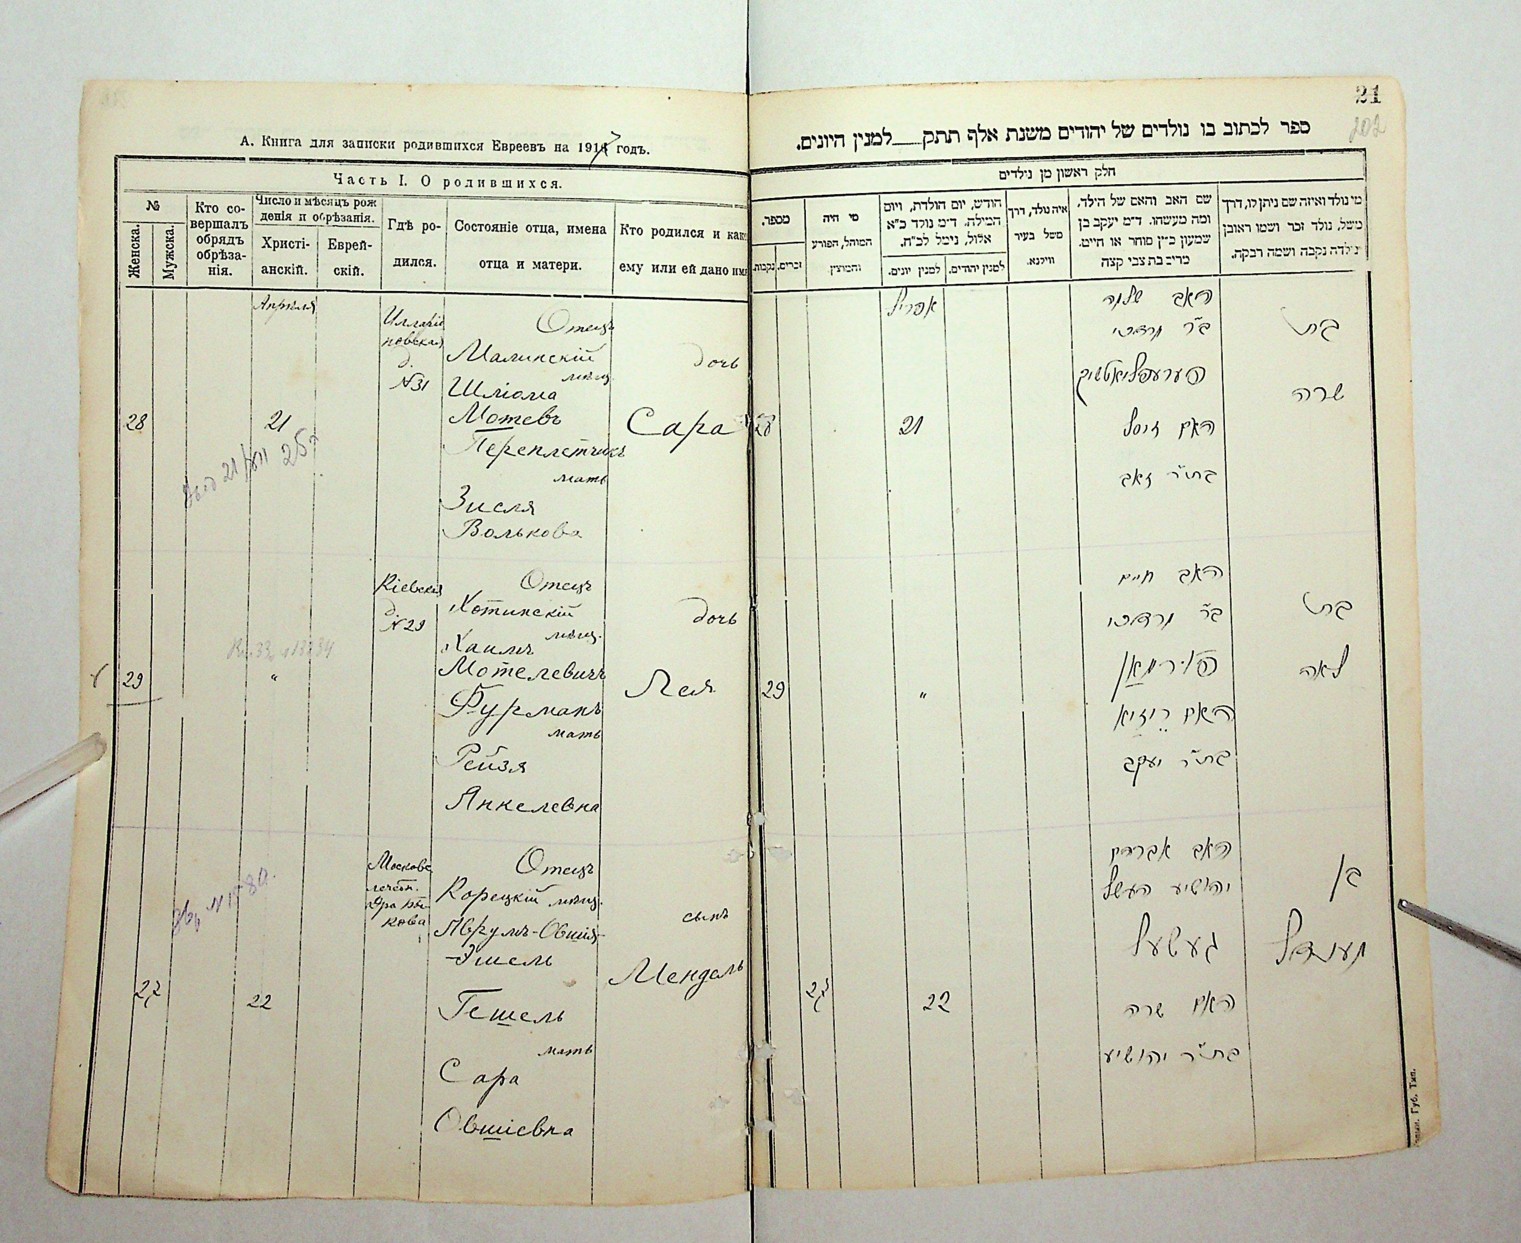 А. Книга для записки родившихся Евреевъ на 1917 годъ.
Часть I. О родившихся.
№
Женска.
Мужска.
Кто со-
вершалъ
обрядъ
обрѣза-
нія.
Число и мѣсяцъ рож
денія и обрѣзанія.
Христі-
анскій.
Еврей-
скій.
Гдѣ ро-
дился.
Состояніе отца, имена
отца и матери.
Кто родился и как
ему или ей дано имя
Апрѣля
28
21
д.
№31
Отецъ
Малинскій
мѣщ.
Шліома
Мотевъ
Переплетчикъ
мать
Зисля
Волькова
дочь
Сара
29
"
Кіевская
д.
№29
Отецъ
Хотинскій
мѣщ.
Хаимъ
Мотелевичъ
Фурманъ
мать
Рейзя
Янкелевна
дочь
Лея
27
22
Московс
лечебн.
Отецъ
Корецкій мѣщ.
Аврумъ-Овшія-
Эшель
Гешель
мать
Сара
Овшіевна
сынъ
Мендель
21
202
ספר לכתוב בו נולדים של יהודים משנת אלף תתק למנין היונים.
חלק ראשון מן נולדים
מספר.
נקבות.
זכרים.
מי היה
המוהל, הפורע
והמוצץ.
חודש, יום הולדת, ויום
המילה. ד״מ נולד כ״א
אלול, נימל לכ״ח.
למנין יונים.
למנין יהודים.
איה נולד, דרך
משל בעיר
ווילנא.
שם האב והאם של הילד,
ומה מעשהו. ד״מ יעקב בן
שמעון כ״ץ סוחר או חיים.
מרים בת צבי קצה
מי נולד ואיזה שם ניתן לו, דרך
משל, נולד זכר ושמו ראובן
נילדה נקבה ושמה רבקה.
אפריל
28
21
האב שלמה
ב״ר מרדכי
האם זיסל
בת״ר זאב
בת
שרה
29
"
האב חיים
ב״ר מרדכי
האם רייזיא
בת״ר יעקב
בת
לאה
27
22
האב אברהם
יהושיע העשל
געשעל
האם שרה
בת״ר יהושיע
בן
מענדל
Губ. Тип.